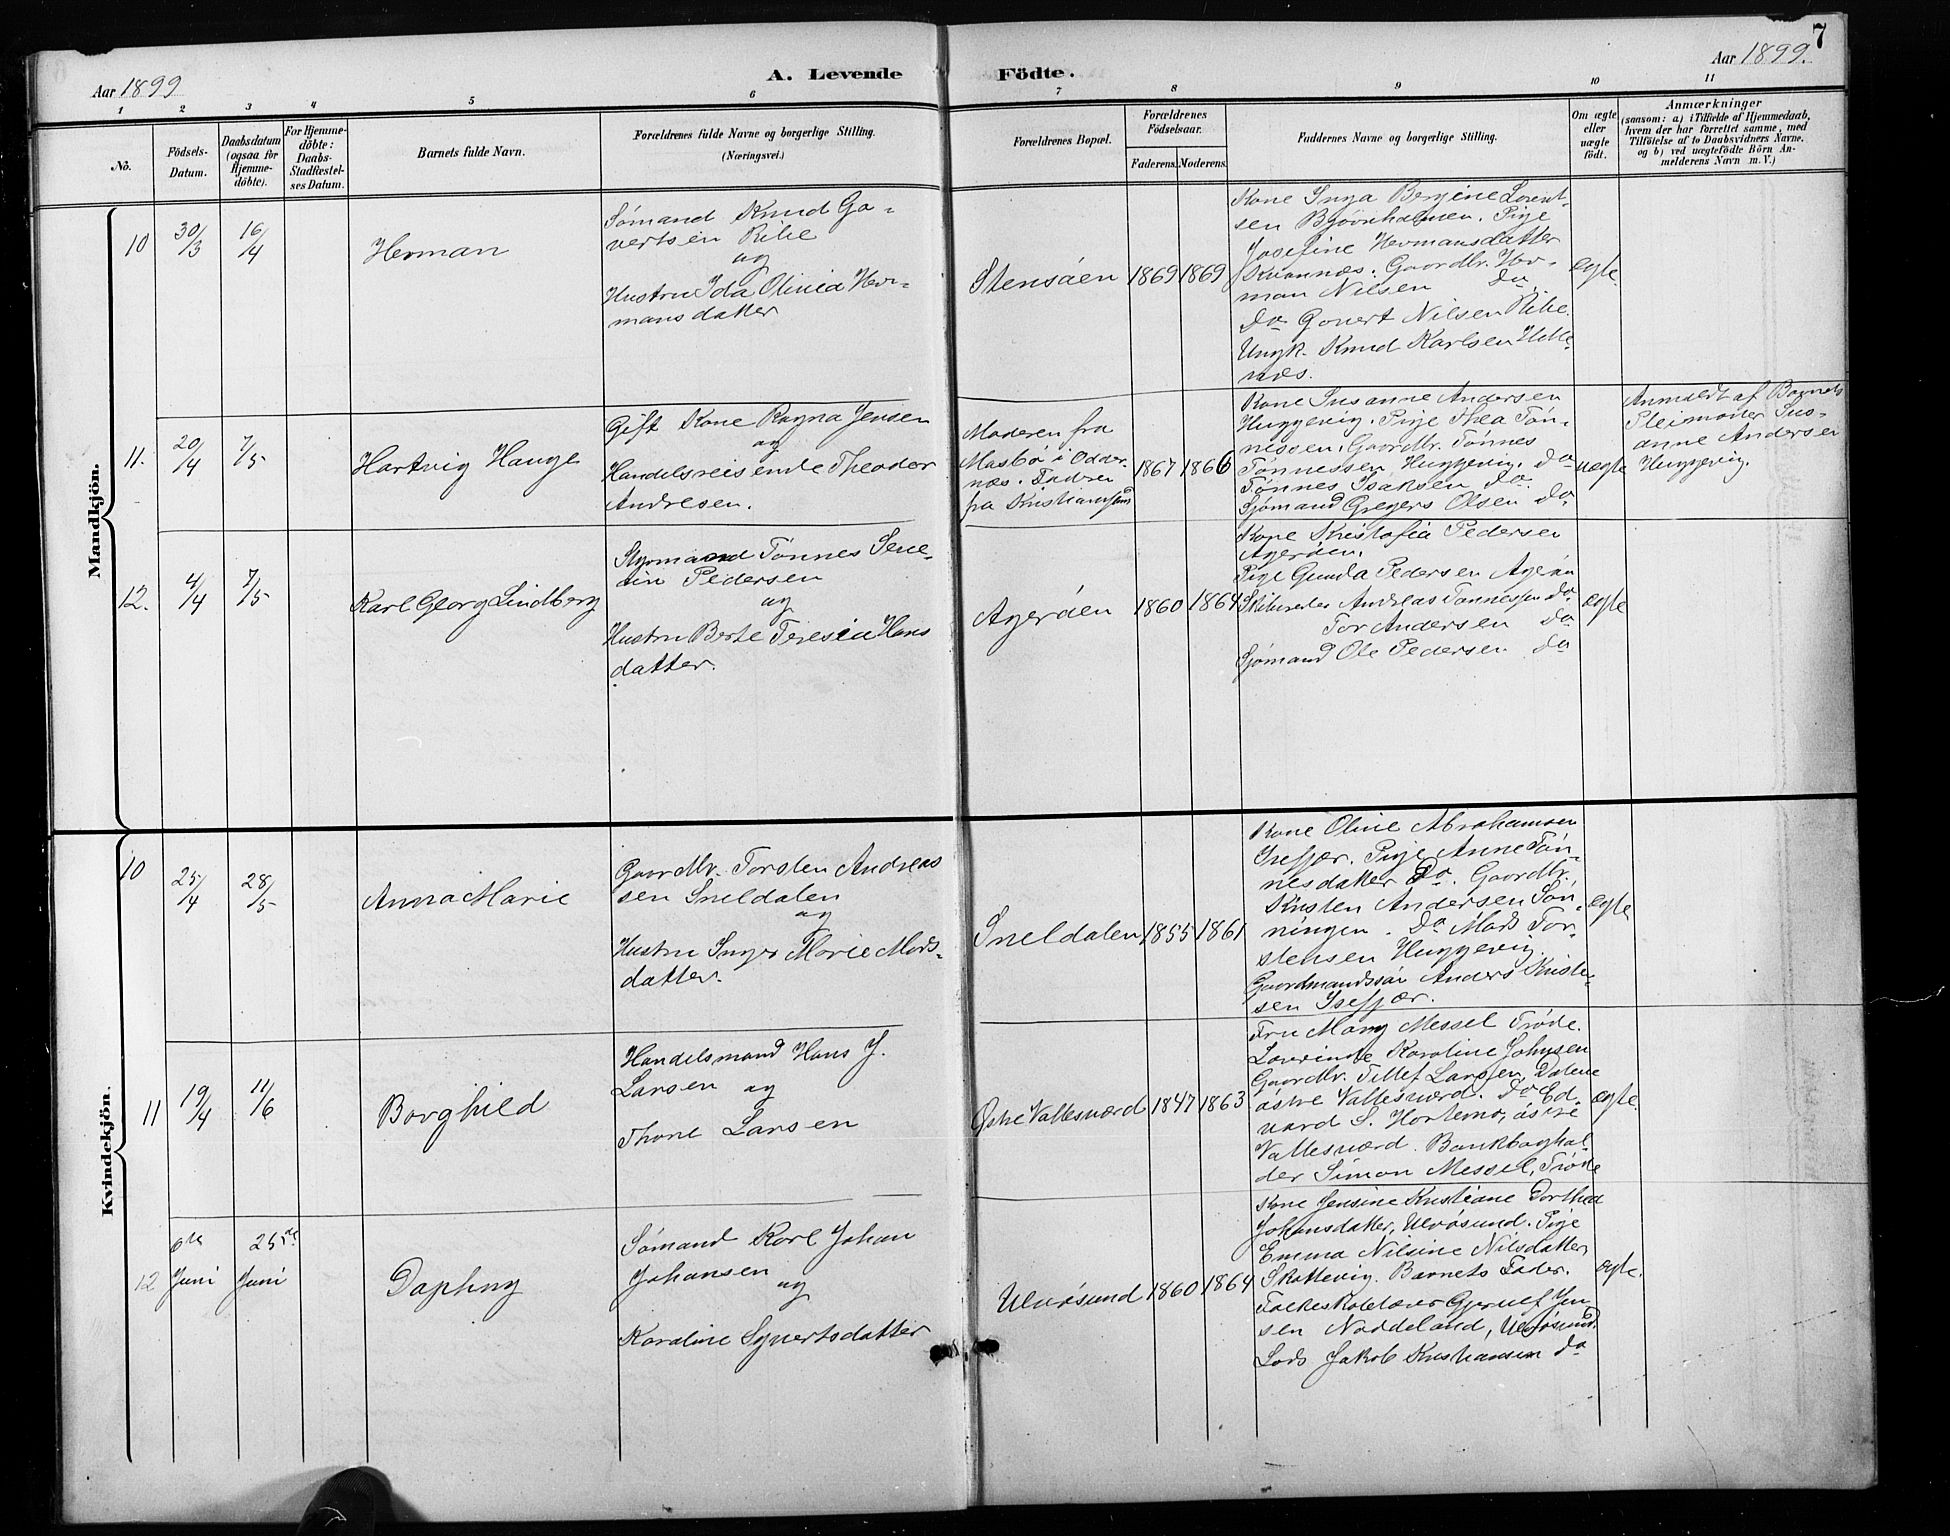 7
Aar 1899
A. Levende Födte.
Aar 1899.
1 2 3 4 5 6 7 8 9 10 11
No.
Födsels-
Datum.
Daabsdatum
(ogsaa for
Hjemme-
döbte).
For Hjemme-
döbte:
Daabs-
Stadfæstel-
ses Datum.
Barnets fulde Navn.
Forældrenes fulde Navne og borgerlige Stilling.
(Næringsvei.)
Forældrenes Bopæl.
Forældrenes
Födselsaar.
Faderens. Moderens.
Faddernes Navne og borgerlige Stilling.
Om ægte
eller
uægte
födt.
Anmærkninger
(saasom: a) i Tilfælde af Hjemmedaab,
hvem der har forrettet samme, med
Tilföielse af to Daabsvidners Navne.
og b) ved uægtefödte Börn An-
melderens Navn m. V.)
Mandkjön.
10
30/3
16/4
Herman
Sømand Knud Go-
vertsen Ribe
og
Hustru Ida Olivia Her-
mansdatter
Stensöen
1869
1869
Kone Inga Bergine Lorent-
sen Bjørnhamen. Pige
Josefine Hermansdatter
Kvannæs. Gaardbr. Her-
man Nilsen Do.
Do Govert Nilsen Ribe.
Ungk. Knud Karlsen Helle-
næs.
ægte
11.
20/4
7/5
Hartvig Hauge
Gift Kone Ragna Jensen
og
Handelsreisende Theodor
Andresen.
Moderen fra
Mosbö i Odder-
næs. Faderen
fra Kristianssand
1867
1866
Kone Susanne Andersen
Huggevig. Pige Thea Tøn-
nessen. Gaardbr. Tønnes
Tønnessen Huggevig. Do
Tønnes Isaksen Do.
Sjømand Gregers Olsen Do.
uægte
Anmeldt af Barnets
Pleimoder Sus-
anne Andersen
Huggevig.
12.
4/4
7/5
Karl Georg Lindberg
Styrmand Tønnes Seve-
rin Pedersen
og
Hustru Berte Teresia Hans
datter.
Ageröen
1860
1864
Kone Kristofia Pedersen
Ageröen.
Pige Gunda Pedersen Ageröen
Skibsreder Andreas Tønnessen Do.
Tor Andersen Do
Sjømand Ole Pedersen Do
ægte
Kvindekjön.
10
25/4
28/5
Anna Marie
Gaardbr. Torsten Andreas
sen Sneldalen
og
Hustru Inger Marie Mads-
datter.
Sneldalen
1855
1861
Kone Oline Abrahamsen
Isefjær. Pige Anne Tøn-
nesdatter Do. Gaardbr.
Kristen Andersen Tøn-
ningen. Do Mads Tor-
stensen Huggevig.
Gaardmandssøn Anders Kriste-
sen Isefjær.
ægte
11
19/4
11/6
Borghild
Handelsmand Hans J.
Larsen og
Thone Larsen
Østre Vallesværd
1847
1863
Fru Mary Messel Trøde.
Lærerinde Karoline Johnsen
Gaardbr. Tellef Larsen Dalene
østre Vallesværd. Do Ed-
vard S. Hortemo, østre
Vallesværd. Bankboghol-
der Simon Messel, Trøde
ægte.
12
6te
Juni
25de
Juni
Daphny
Sømand Karl Johan
Johansen
og
Karoline Syvertsdatter
Ulvøsund
1860
1864
Kone Jensine Kristiane Dorthea
Johansdatter, Ulvøsund. Pige
Emma Nilsine Nilsdatter
Skottevig. Barnets Fader.
Folkeskolelærer Gjerulf Jen-
sen Noddeland, Ulvøsund.
Lods Jakob Kristiansen Do
ægte.